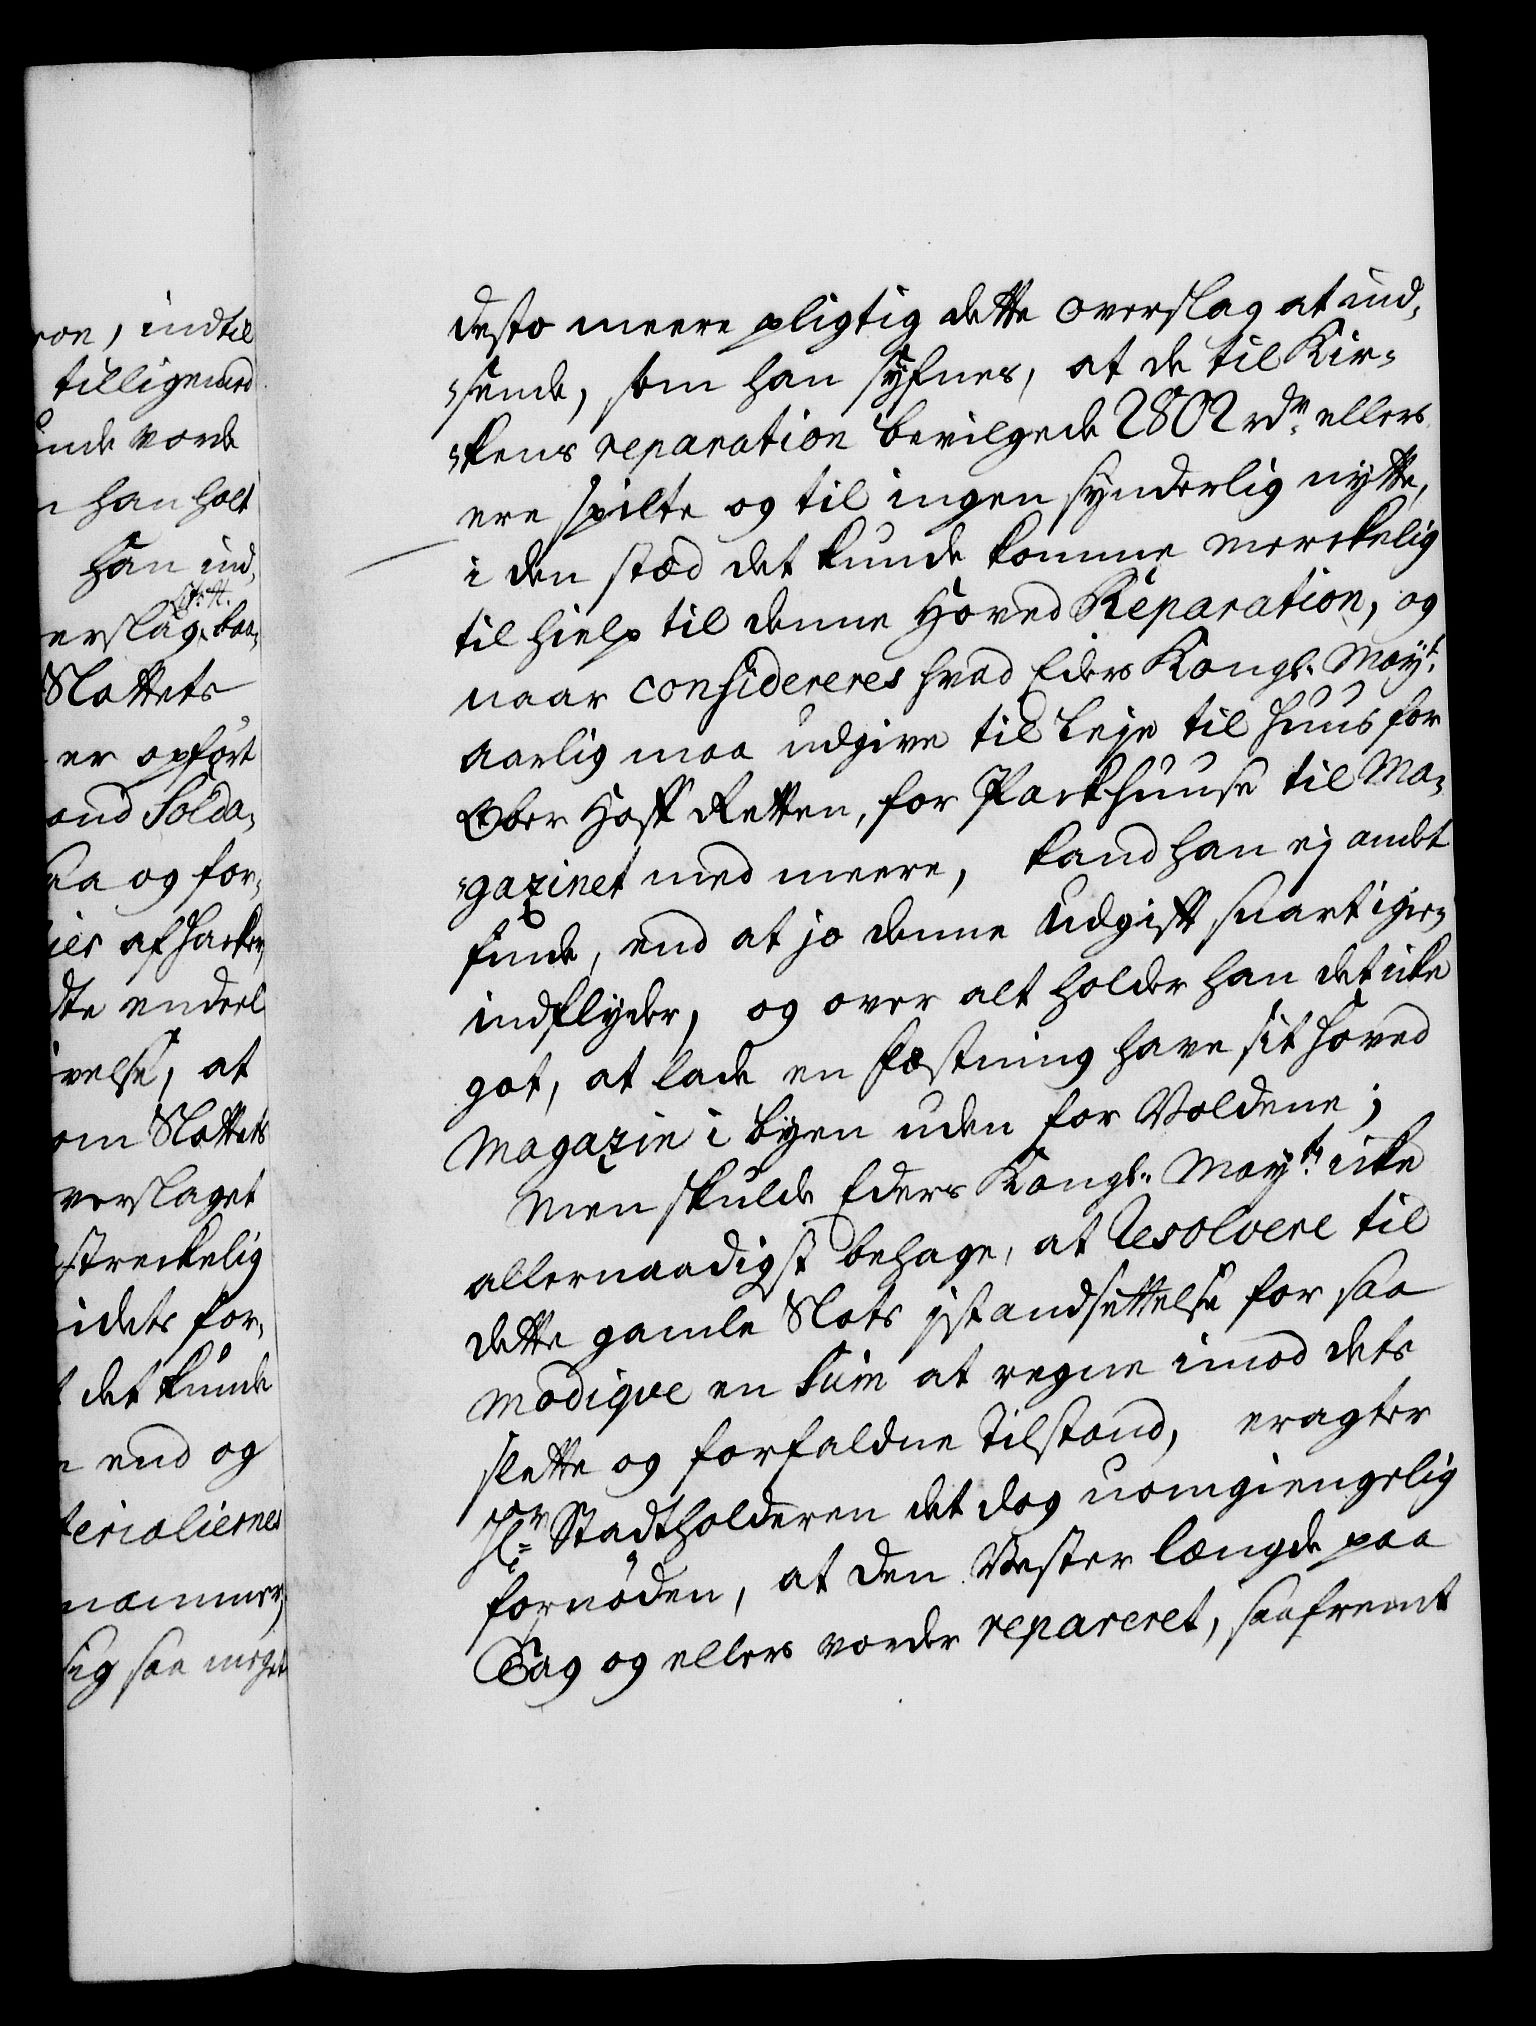 roe, indtil
tilligemed
unde vorde
han holt
han ind,
Lit: A.
erslag, baa,
Slottets
er opført
and Solda,
aa og for,
ier af Harker,
dte endeel
velse, at
om Slottets
verslaget
streckelig
idets for,
det kunde
end og
terialiernes
nammer,
sig saa meget
desto meere pligtig dette overslag at ind,
„sende, som han syfnes, at de til Kir„
„kens reparation bevilgede 2802 rdr. ellers
ere spilte og til ingen synderlig nytte,
i den stæd det kunde komme merckelig
til hielp til denne Hoved Reparation, og
naar considereres hvad Eders Kongl. Mayt.
aarlig maa udgive til leje til huus for
Ober Hoff Retten, for Packhuuse til Ma„
„gazinet med meere, kand han ej andet
finde, end at jo denne Udgift snart igien
indflyder, og over alt holder han det icke
got, at lade en Fæstning have sit hoved
Magazin i byen uden for Voldene;
Men skulde Eders Kongl. Mayt. icke
allernaadigst behage, at Resolvere til
dette gamle Slots istandsettelse for saa
modique en Sum at regne imod dets
slette og forfaldne Tilstand, eragter
Hr. Stadtholderen det dog uomgiengelig
fornøden, at den Vester længde paa
Tag og ellers vorder repareret, saafremt